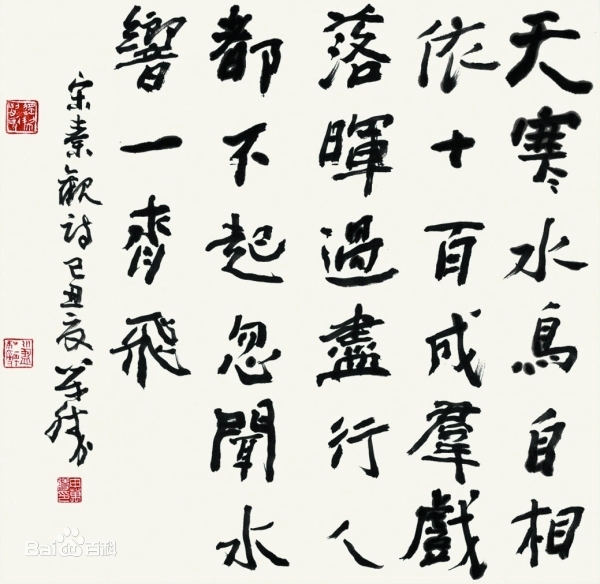 天寒水鳥自相
依十百成羣戲
落暉過盡行人
都不起忽聞水
響一齊飛
宋秦觀诗己丑夏
Bai百科